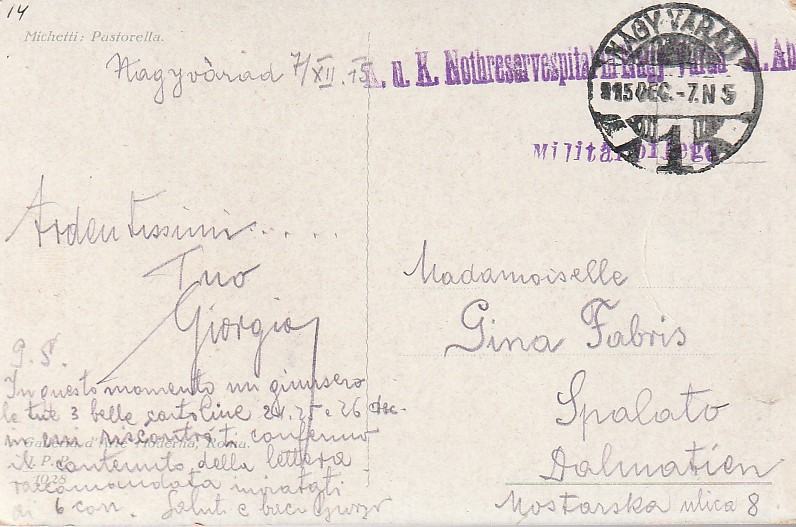 14
Michetti: Pastorella.
Nagyvàrad 7/XII. 15
K. u K. Nothreservespital in Nagy-Várad
NAGYVÁRAD
915 DEC.-7.N 5
1
Militärpflege
Ardentissimi.....
Tuo
Giorgio
Madamoiselle
Gina Fabris
Spalato
Dalmatien
Mostarska ulica 8
P. S.
In questo momento mi giunsero
le tue 3 belle cartoline 24. 25 e 26
in cui riscontro t. confermo
Galleria d'Arte Moderna, Roma.
il contenuto della lettera
raccomandata inviatati
ai 6 corr. Saluti e baci